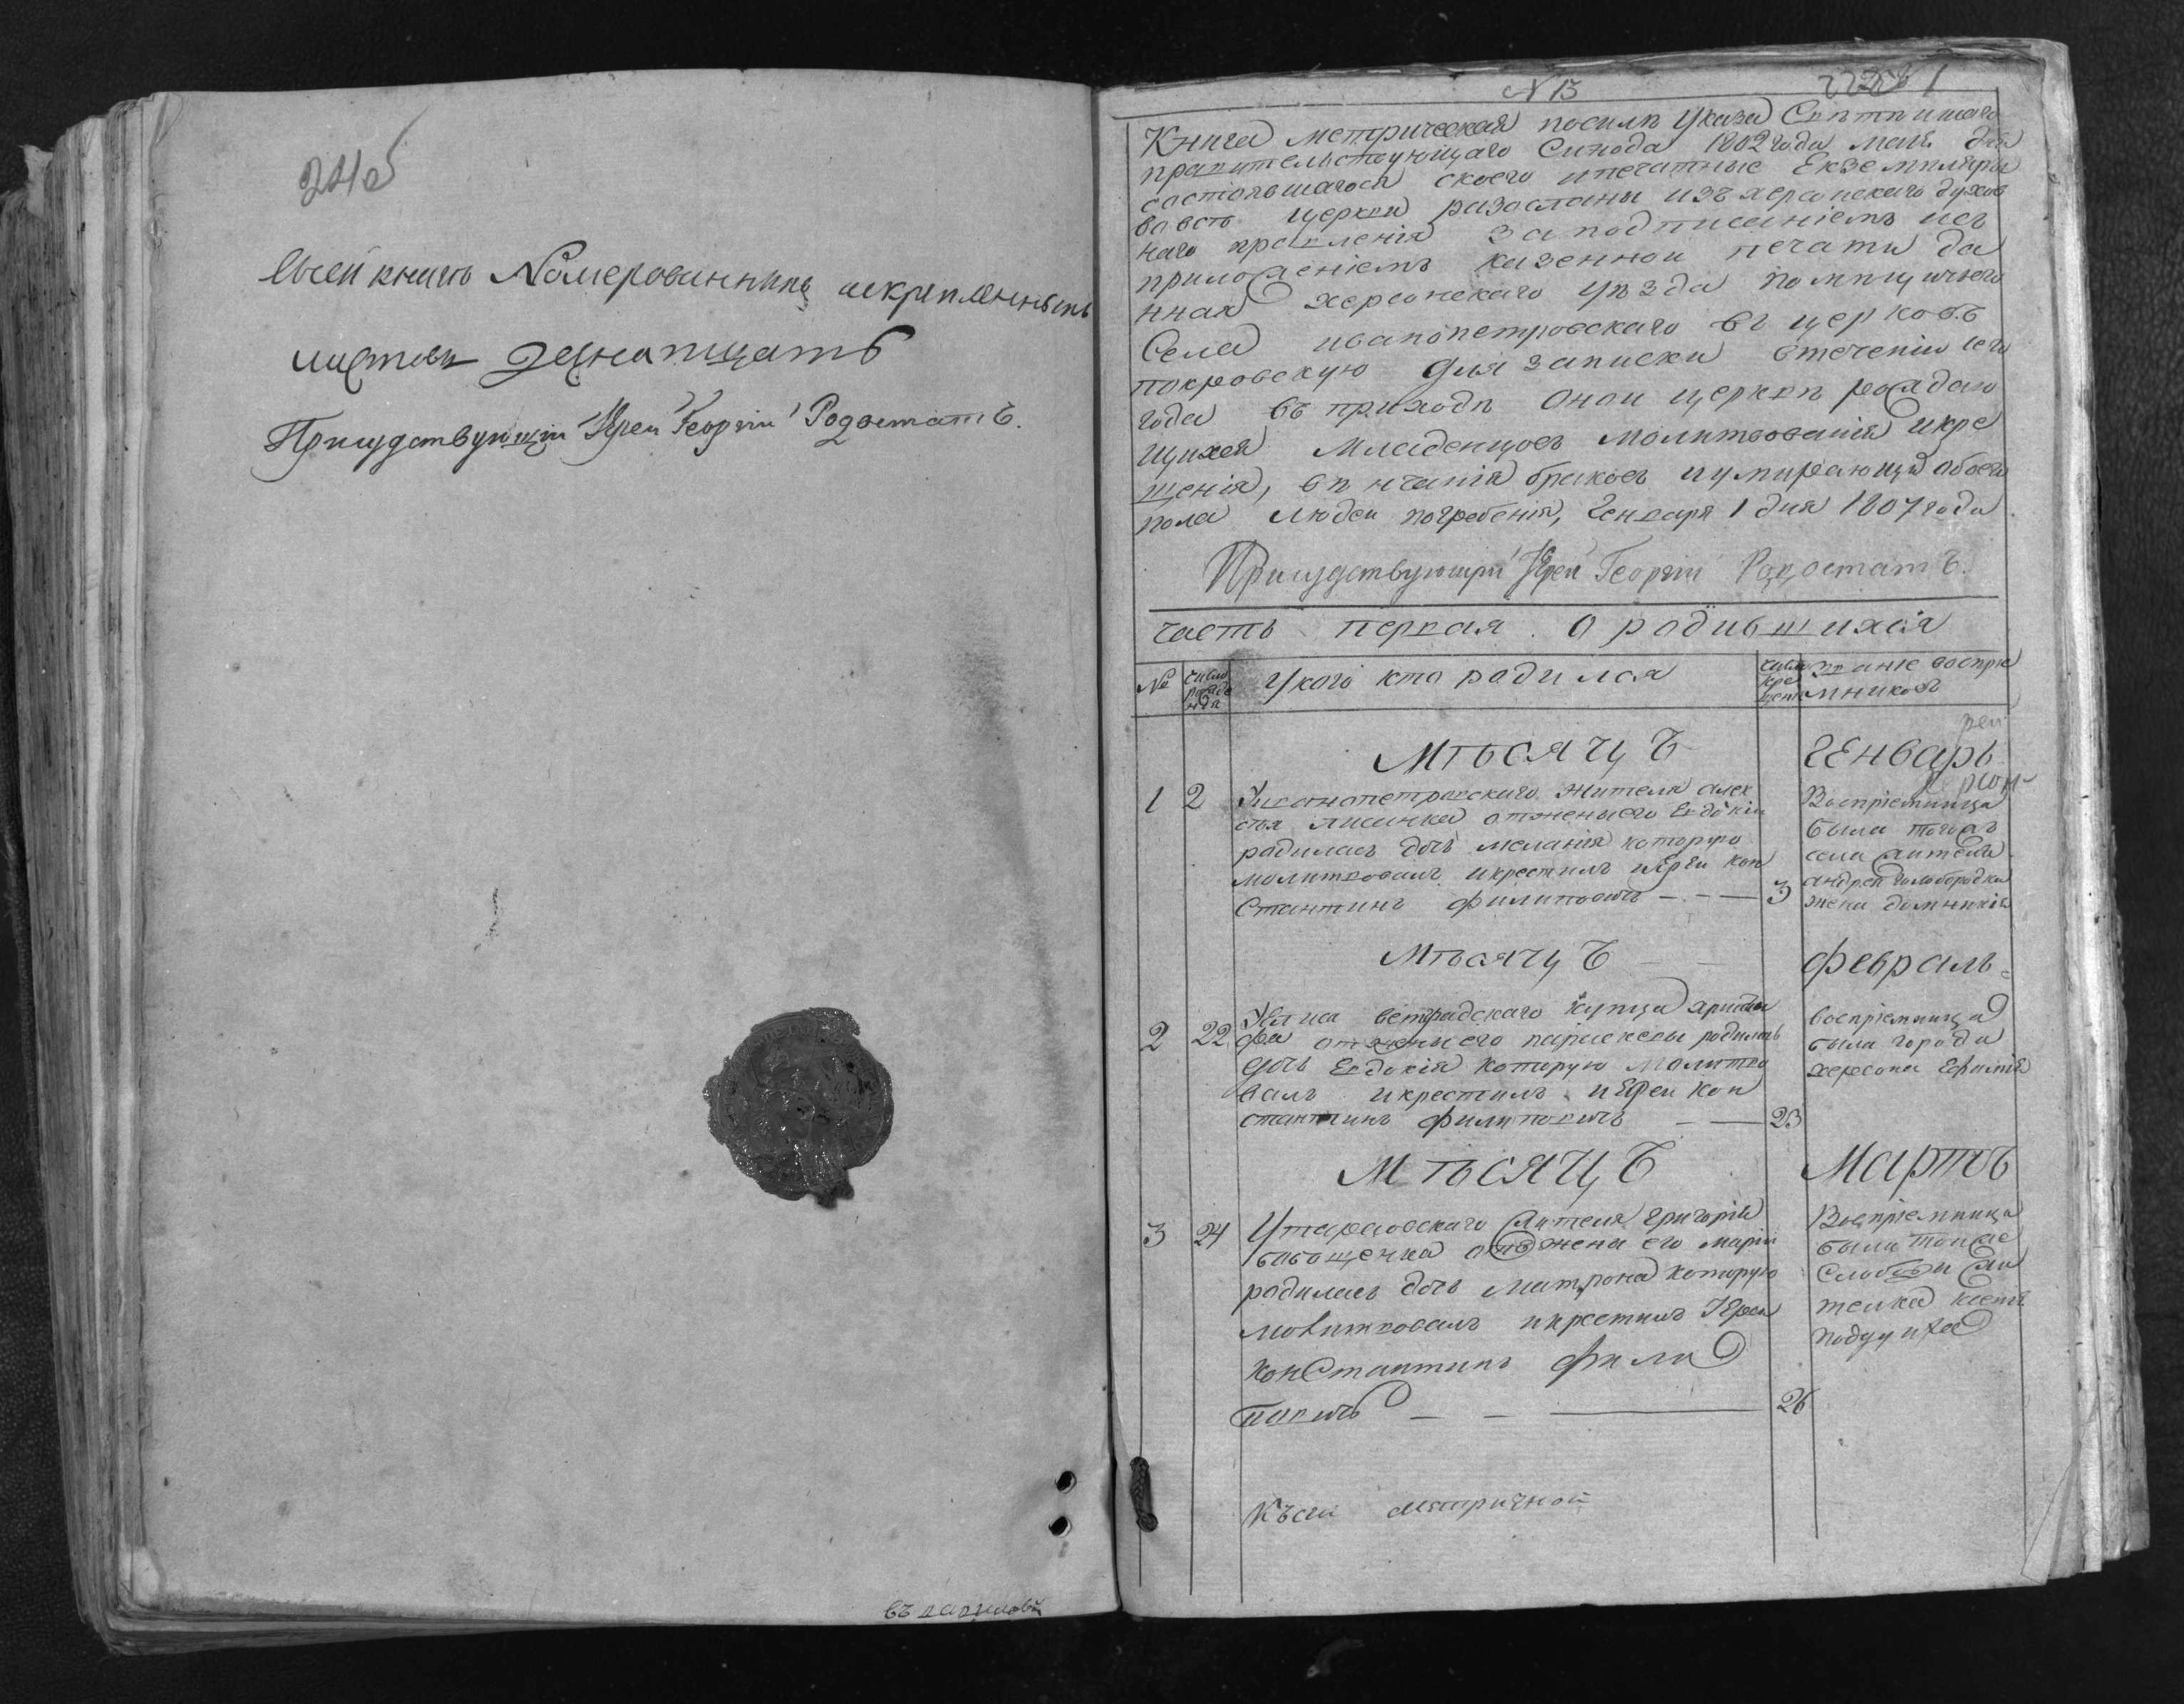 Всей книгѣ Номерованныхъ искрепленныхъ
листовъ
Присудствующій Іереи Георгіи Родостатъ.
N 13
Книга метрическая посилѣ указа Святѣишаго
правительствующаго Синода 1802 года
состоявшагося своего ипечатные Екземпляры
вовсѣ церкви разосланы изъ херсонскаго духов
наго правленія заподписаніемъ исъ
приложеніемъ казенной печати да
нная херсонскаго уѣзда помѣщичьего
Села иванопетровскаго въ церковъ
покровскую для записки втеченіи сего
года въ приходѣ оной церкви рождаю
щихся Младенцовъ молитвованія икре
щенія, вѣнчанія браковъ иумирающих обоего
пола людеи погребенія, Генваря 1 дня 1807 года
Присудствующіи Іереи Георгіи Родостатъ.
часть первая о родившихся
№ число рожде нія Укого кто родился число кре щен званіе воспріе мниковъ
Мѣсяцъ Генварь
1 2 Уиванопетровского жителя алек
сѣя лисинка отжены его Евдокіи
родилась дочь меланія которую
молитвовалъ икрестилъ иереи кон
стантинъ филиповичъ 3
Воспріемница
была тогожъ
села жителя
андрея голобородка
жена домникія
Мѣсяцъ Февраль
2 22 купца
отжены его параскевы родилась
дочь Евдокія которую молитво
валъ икрестилъ иереи кон
стантинъ филиповичъ 23
воспріемница
была города
херсона Ефимія
Мѣсяцъ Мартъ
3 24 Утарасовскаго жителя григорія
отъ жены его маріи
родилась дочь матрона которую
молитвовалъ икрестилъ Іереи
константинъ фили
повичъ 26
Воспріемница
была тоиже
слободы жи
телка
Късей метричной